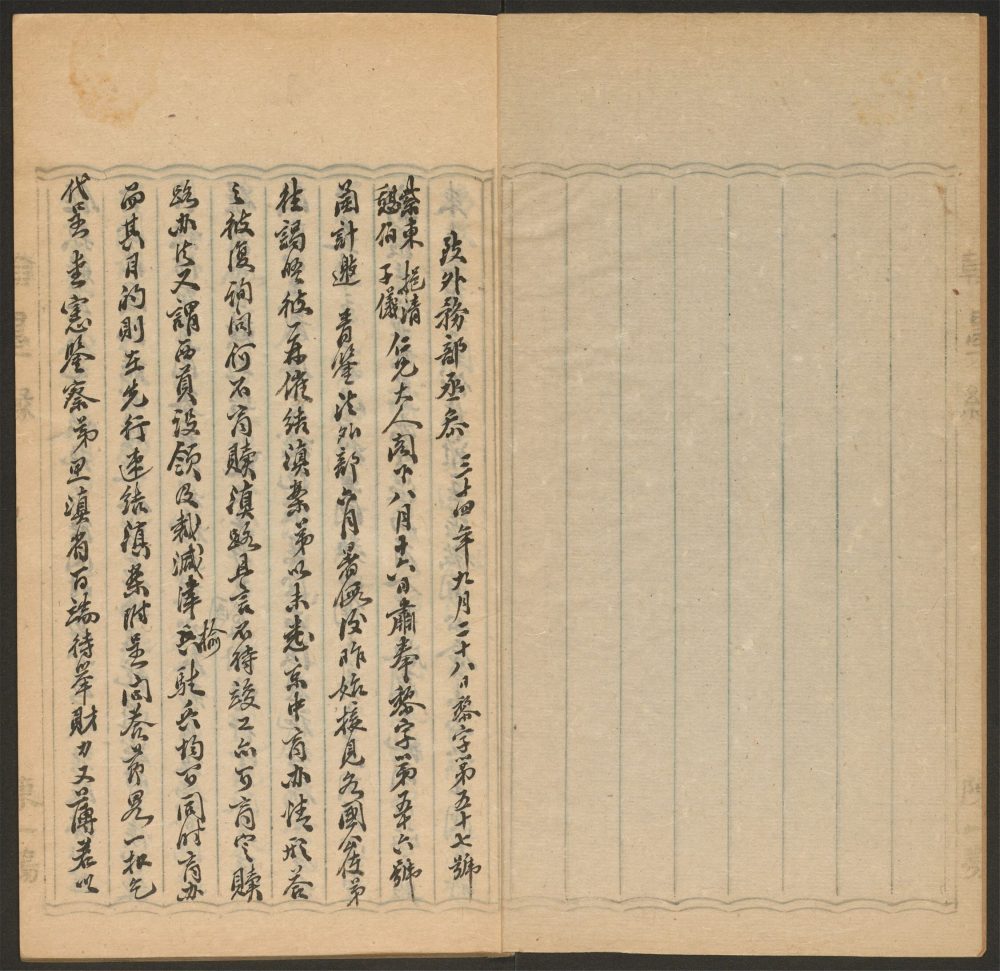 致外務部丞參 三十四年九月二十八日黎字第五十七號
蔡東 挹清
憩伯 子儀 仁兄大人閣下八月十六日肅奉黎字第五十六號
蘭計邀 青鑒法外部六月暑假後昨始接見各國公使弟
往謁晤彼再催結滇案弟以未悉京中商办情形答
之彼復詢問何不商贖滇路且言不待竣工亦可商定贖
路办法又謂西貢設領及裁減津榆駐兵均可同時商办
而其目的則在先行速結滇案附呈問答節畧一扣乞
代呈 堂憲鑒察弟思滇省百端待舉財力又薄若以